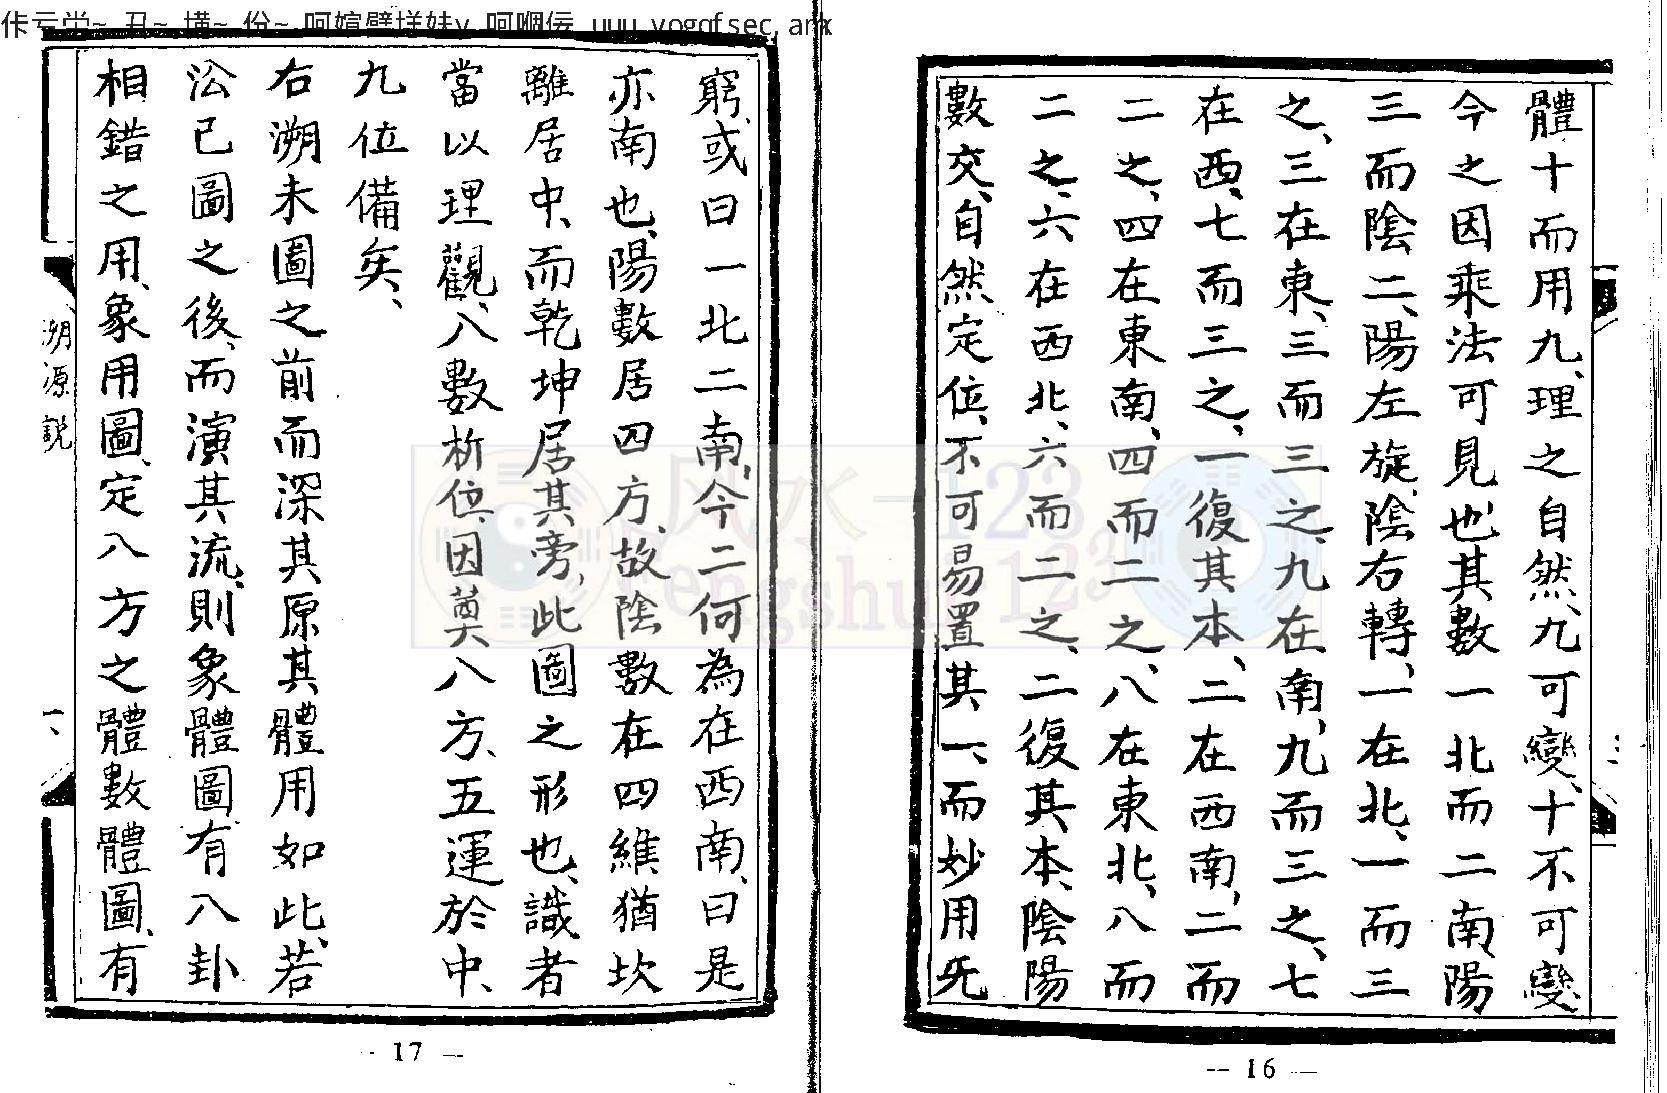 體十而用九、理之自然、九可變、十不可變、
今之因乘法可見也、其數一北而二南、陽
三而陰二、陽左旋、陰右轉、一在北、一而三
之、三在東、三而三之、九在南、九而三之、七
在西、七而三之、一復其本、二在西南、二而
二之、四在東南、四而二之、八在東北、八而
二之、六在西北、六而二之、二復其本、陰陽
數交、自然定位、不可易置其一、而妙用旡
— 16 —
窮、或曰一北二南、今二何為在西南、曰是
亦南也、陽數居四方、故陰數在四維猶坎
離居中、而乾坤居其旁、此圖之形也、識者
當以理觀、八數析位、因奠八方、五運於中、
九位備矣、
右溯未圖之前而深其原其體用如此、若
㳂已圖之後、而演其流、則象體圖有八卦
相錯之用、象用圖、定八方之體數體圖、有
溯源説
— 17 —
风水-123
fengshui 123